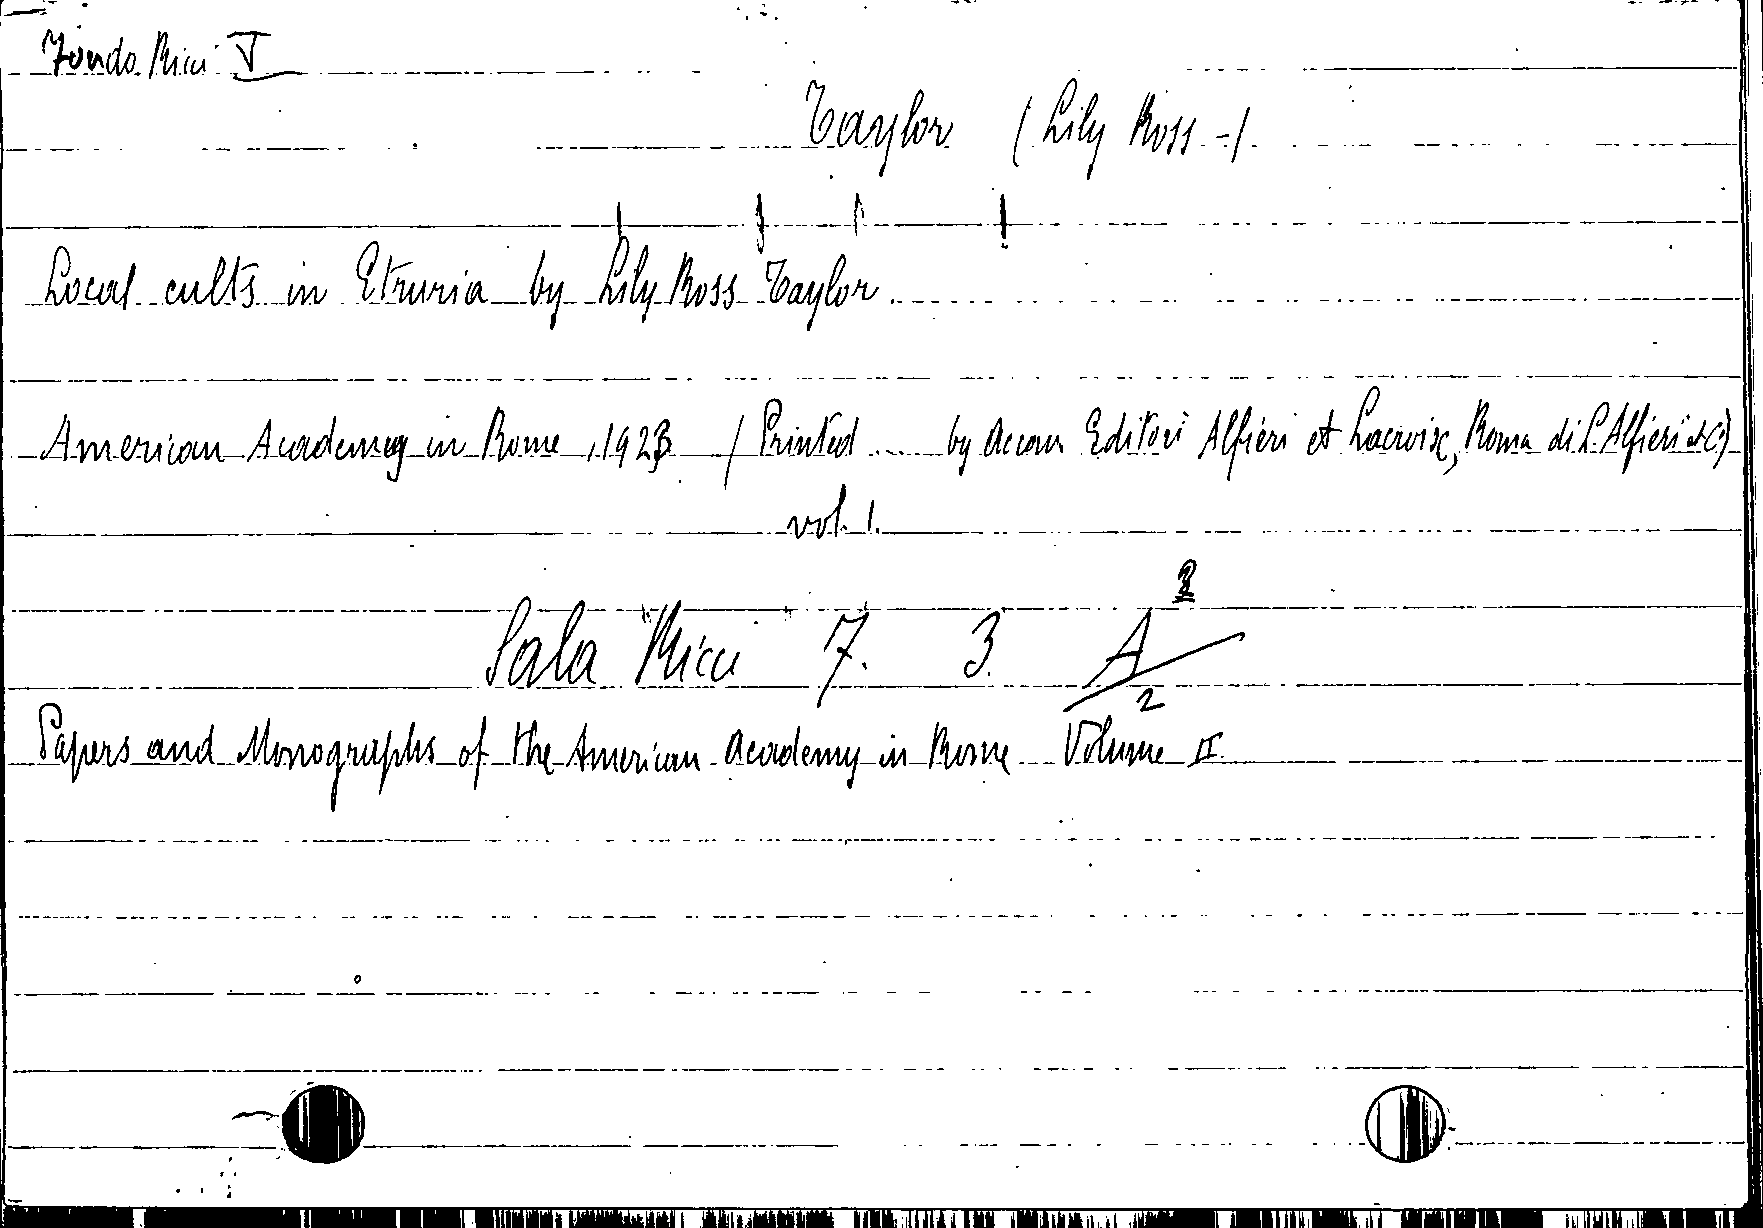 Fondo Ricci V
Taylor (Lily Ross -)
Local cults in Etruria by Lily Ross Taylor
American Academy in Rome, 1923 (Printed ..... by Editori Alfieri et Lacroix, Roma di L. Alfieri et C)
vol. 1.
Sala "Ricci" 7. 3. A 2
Papers and Monographs of the American Academy in Rome Volume II